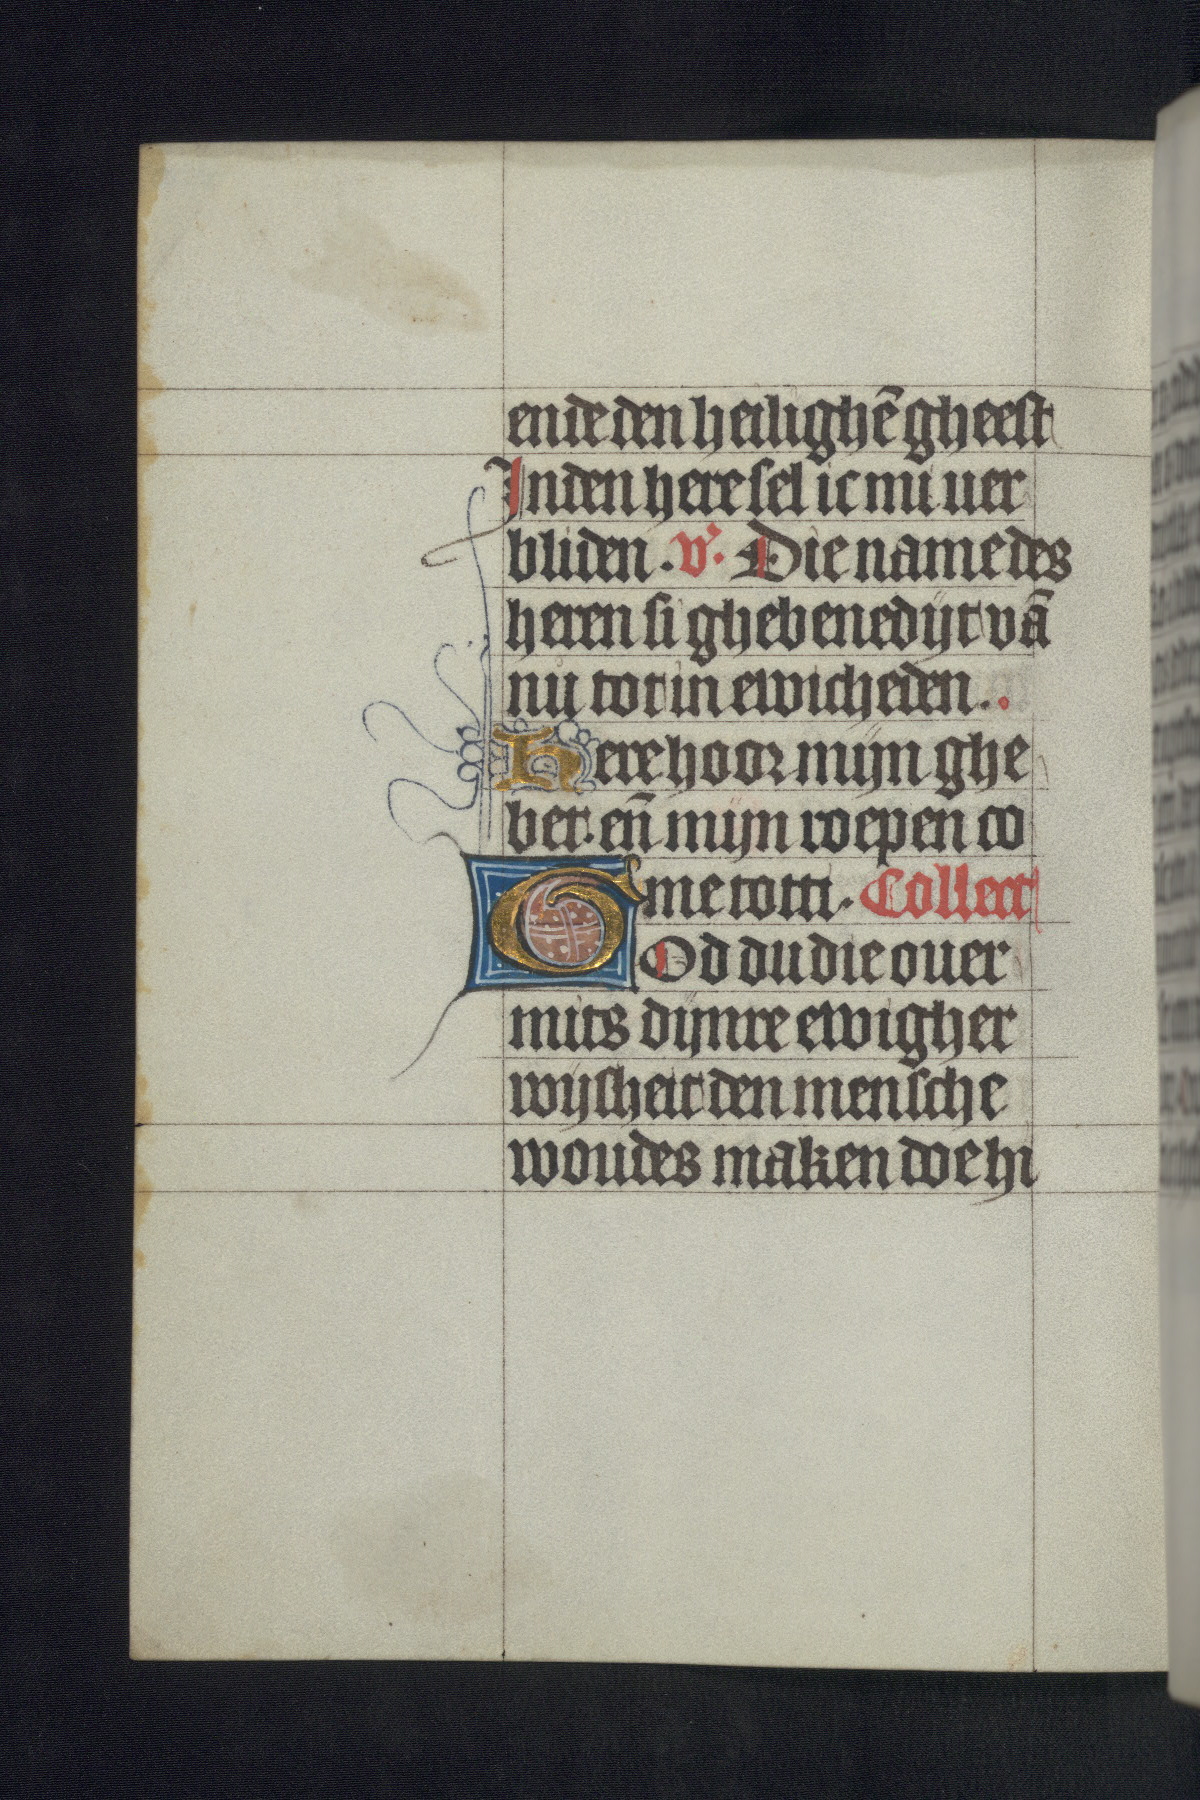 ende den heilighē gheest
Inden here sel ic mi uer
bliden. v̕. Die name des
heren si ghebenedijt vā
nu tot in ewicheden..
Here hoor mijn ghe
bet. eñ mijn roepen co
me totti. Collect
GOd du die ouer
mits dijnre ewigher
wijsheit den mensche
woudes maken doe hi